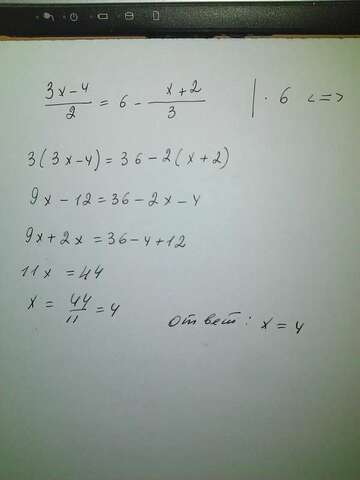 (3x-4)/2 = 6 - (x+2)/3 | · 6 <=>
3(3x-4)=36-2(x+2)
9x-12=36-2x-4
9x+2x=36-4+12
11x=44
x = 44/11 = 4
ответ: x=4